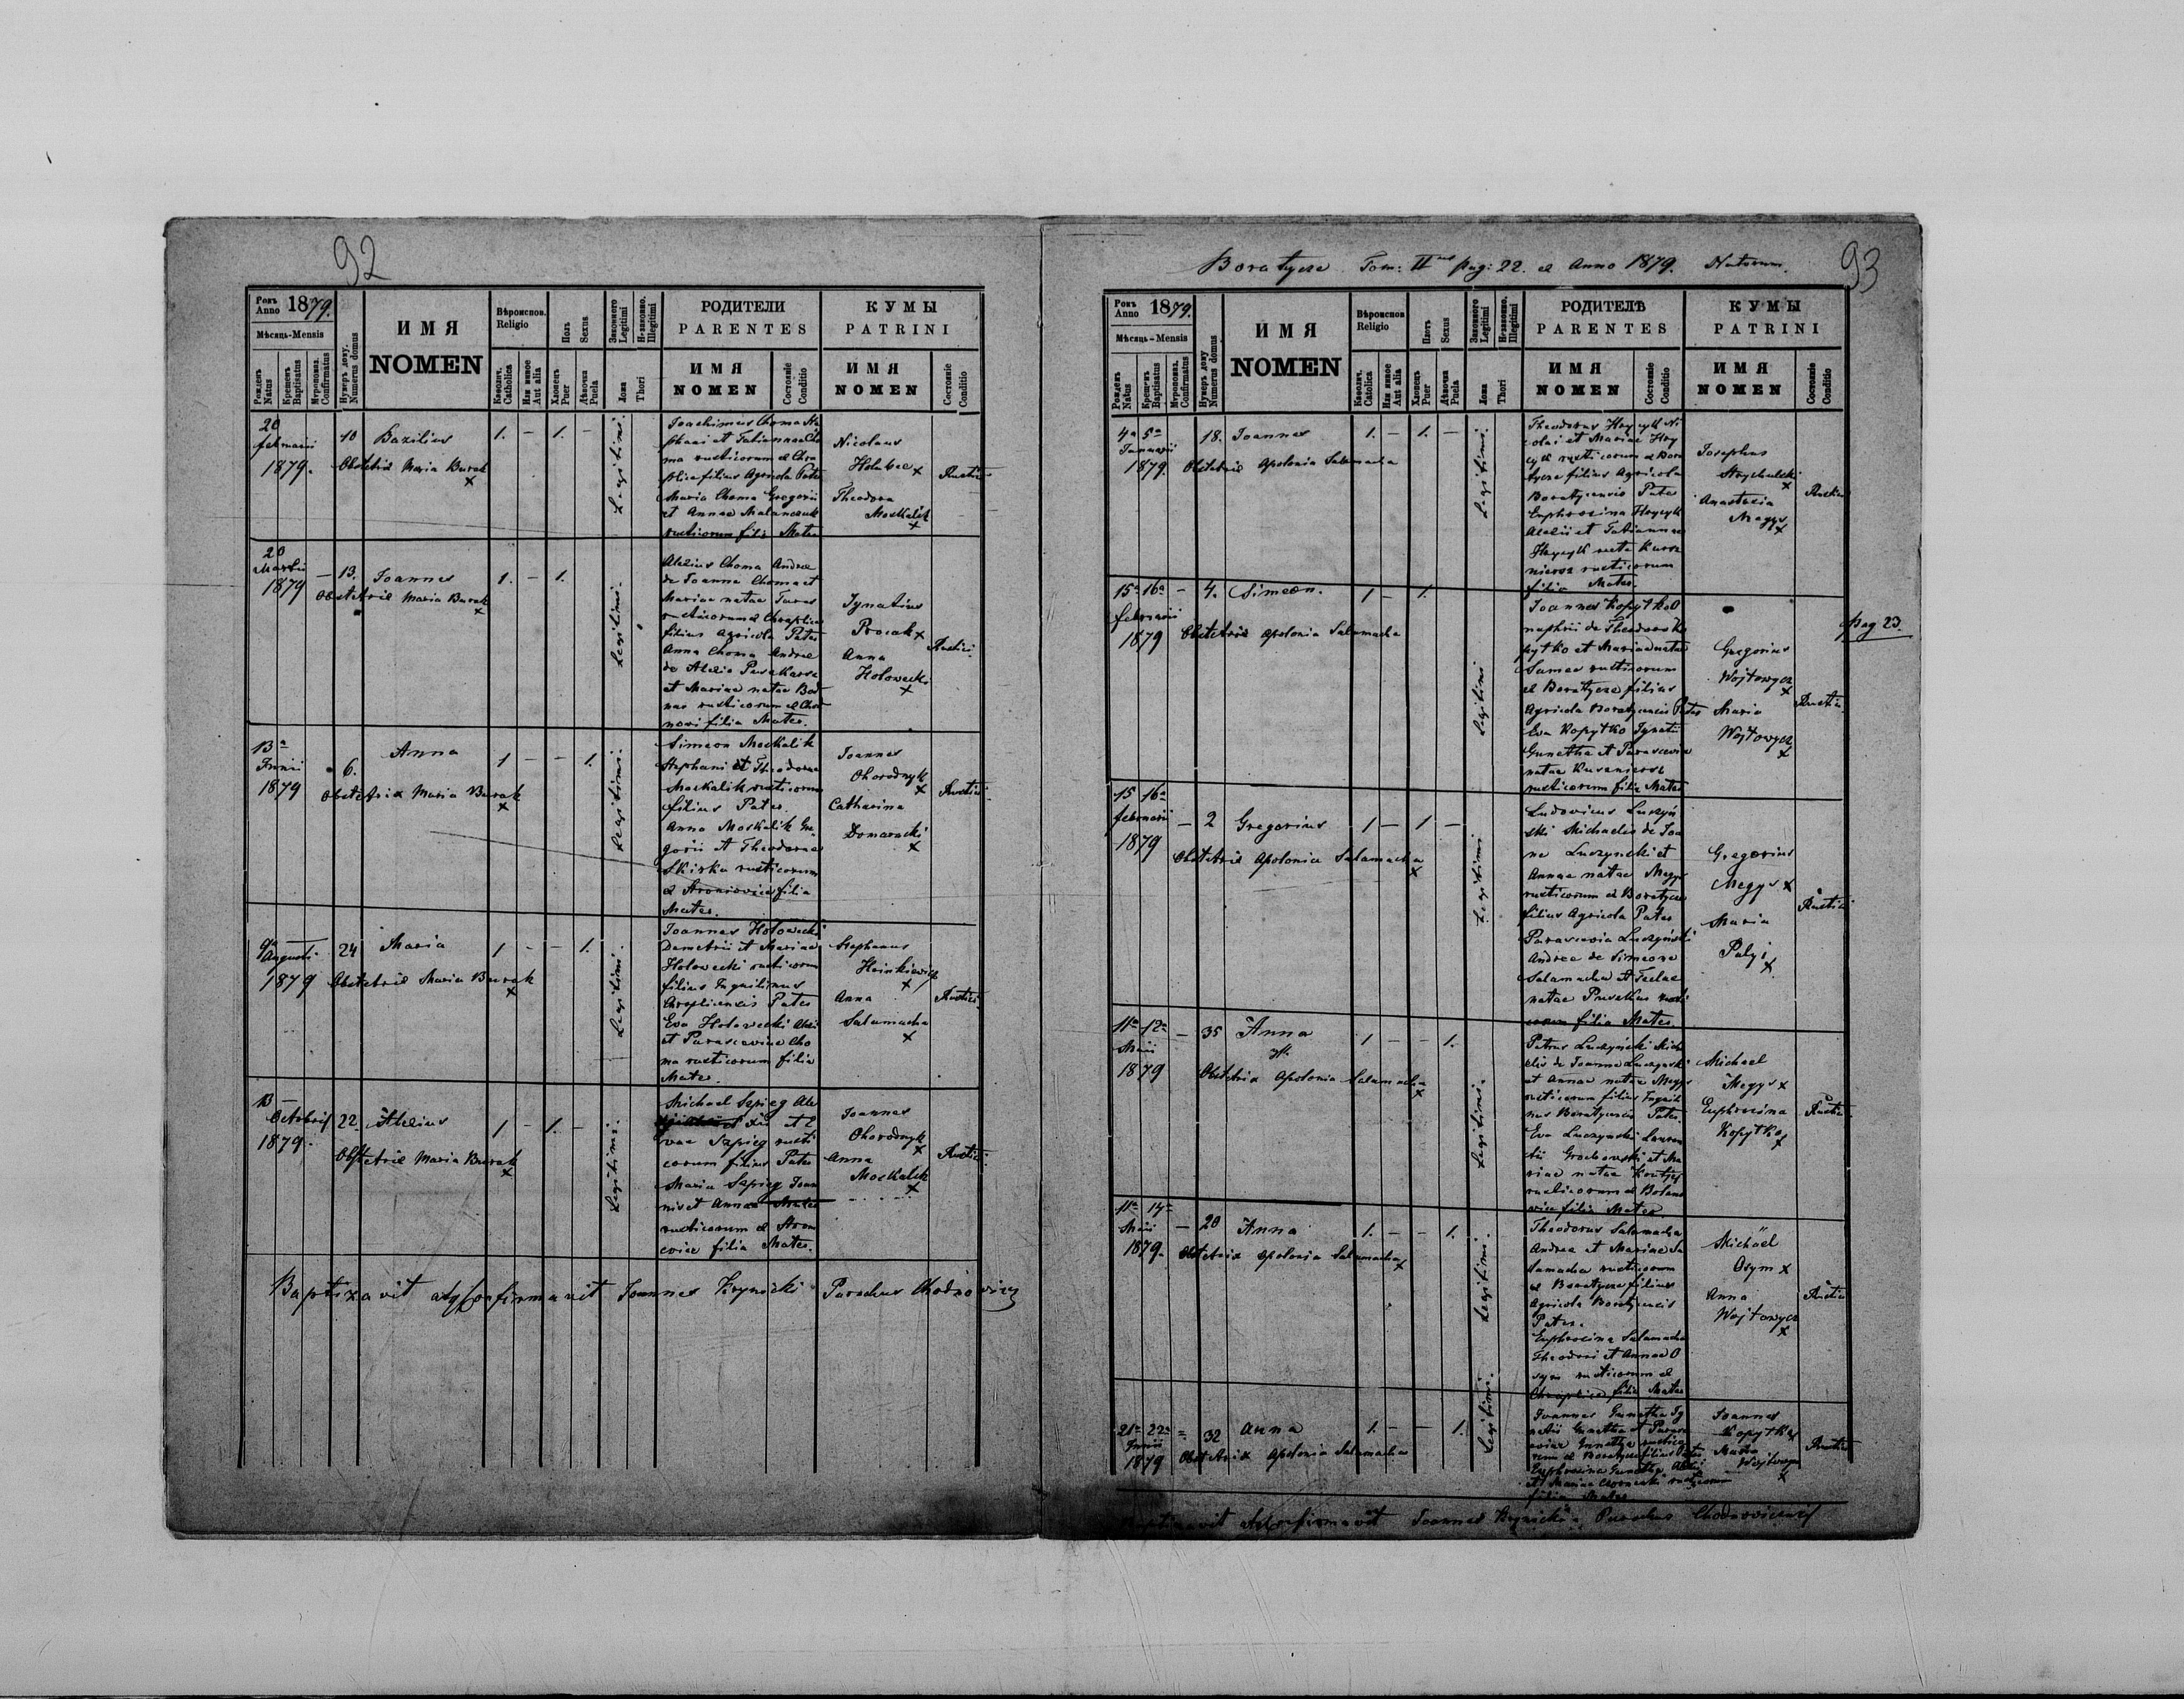 92
Рокъ Anno 1879.
Мѣсяць-Mensis
Рожденъ Natus
Крещенъ Baptisatus
Мѵропомаз. Confirmatus
Нумеръ дому. Numerus domus
ИМЯ
NOMEN
Вѣроиспов. Religio
Католич. Catholica
Или иное Aut alia
Полъ Sexus
Хлопецъ Puer
Дѣвочка Puela
Законного Legitimi
Незаконно. Illegitimi
Ложа Thori
РОДИТЕЛИ
PARENTES
ИМЯ
NOMEN
Состояніе Conditio
КУМЫ
PATRINI
ИМЯ
NOMEN
Состояніе Conditio
20
februarii
1879.
10 Bazilius 1. - 1. -
Obstetrix Maria Burak
x
Legitimi.
Joachimus Choma Ste
phani et Tatiannae Cho
ma rusticorum ex Chra
plice filius Agricola Pater
Maria Choma Gregorii
et Annae Malanczuk
rusticorum filia Mater
Nicolaus
Holubec x
Theodora
Moskalik
x
Rustici
20
Martii
1879 — 13. Joannes 1. - 1.
Obstetrix Maria Burak
x
Legitimi.
Alexius Choma Andreae
de Joanne Choma et
Mariae natae Turas
rusticorum ex Chraplice
filius Agricola Pater
Anna Choma Andreae
de Alexio
et Mariae natae Bod
nar rusticorum ex Chod
nowi filia Mater.
Ignatius
Procak x
Anna
Holowecki
x
Rustici
13a
Junii
1879
6. Anna 1 - - 1.
Obstetrix Maria Burak
x
Legitimi.
Simeon Moskalik
Stephani et Theodorae
Moskalik rusticorum
filius Pater.
Anna Moskalik Gre
gorii et Theodorae
Skirka rusticorum
ex Stroniovice filia
Mater.
Joannes
Ohorodnyk
x
Catharina
Domaracki
x
Rustici
9a
Augusti
1879
24 Maria 1 - - 1.
Obstetrix Maria Burak
x
Legitimi.
Joannes Holowecki
Demetrii et Mariae
Holowecki rusticorum
filius Inquilinus
Chraplicensis Pater
Eva Holowecki Alexii
et Parasceviae Cho
ma rusticorum filia
Mater.
Stephanus
Hrinkiewicz
x
Anna
Salamacha
x
Rustici
13
Octobris
1879.
22. Alexius 1 - 1. -
Obstetrix Maria Burak
x
Legitimi.
Michael Szpieg Ale
xii et E
vae Szpieg rusti
corum filius Pater
Maria Szpieg Joan
nis et Annae
rusticorum ex Stron
iovice filia Mater.
Joannes
Ohorodnyk
x
Anna
Moskalik
x
Rustici
Baptizavit atq Confirmavit Joannes Krynicki Parochus Chodnoviens
93
Boratycze Tom: IIus pag: 22. ex Anno 1879. Natorum.
Рокъ Anno 1879.
Мѣсяць-Mensis
Рожденъ Natus
Крещенъ Baptisatus
Мѵропомаз. Confirmatus
Нумеръ дому Numerus domus
ИМЯ
NOMEN
Вѣроиспов. Religio
Католич. Catholica
Или иное Aut alia
Полъ Sexus
Хлопецъ Puer
Дѣвочка Puela
Законного Legitimi
Незаконно. Illegitimi
Ложа Thori
РОДИТЕЛѢ
PARENTES
ИМЯ
NOMEN
Состояніе Conditio
КУМЫ
PATRINI
ИМЯ
NOMEN
Состояніе Conditio
4a 5a
Januarii
1879.
18. Joannes 1. - 1. -
Obstetrix Apolonia Salamacha
Legitimi.
Theodorus Hrycyk Ni
colai et Mariae Hry
cyk rusticorum ex Bora
tycze filius Agricola
Boratycensis Pater
Euphrosina Hrycyk
Alexii et Tatiannae
rusticorum
filia Mater.
Josephus
x
Anastasia
Megys
x
Rustici
15a 16a
februarii
1879
- 4. Simeon. 1 - 1.
Obstetrix Apolonia Salamacha
Legitimi
Joannes Kopytko O
nuphrii de Theodoro Ko
pytko et Mariae natae
rusticorum
ex Boratycze filius
Agricola Boratycensis Pater
Eva Kopytko Ignatii
Gunetka et Parasceviae
natae
rusticorum filia Mater
Gregorius
Wojtowycz
x
Maria
Wojtowycz
x
Rustici
pag 23.
15 16a
februarii
1879
- 2 Gregorius 1 - 1 -
Obstetrix Apolonia Salamacha
x
Legitimi
Ludovicus Luczyn
ski Michaelis de Joa
ne Luczynski et
Annae natae Megys
rusticorum ex Boratycze
filius Agricola Pater
Parascevia Luczynski
Andreae de Simeone
Salamacha et Teclae
natae rusti
corum filia Mater
Gregorius
Megys x
Maria
Palyj
x
Rustici
11a 12a
Maii
1879
- 35 Anna 1 - - 1.
Obstetrix Apolonia Salamacha
x
Legitimi.
Petrus Luczynski Mich
elis de Joanne Luczynski
et Annae natae Megys
rusticorum filius Inquili
nus Boratycensis Pater
Eva Luczynski Lauren
tii et Ma
riae natae
rusticorum ex
filia Mater
Michael
Megys x
Euphrosina
Kopytko
x
Rustici
11a 14a
Maii
1879.
- 20 Anna 1. - - 1.
Obstetrix Apolonia Salamacha
x
Legitimi.
Theodorus Salamacha
Andreae et Mariae Sa
lamacha rusticorum
ex Boratycze filius
Agricola Boratycensis
Pater.
Euphrosina Salamacha
Theodori et Annae O
sym rusticorum ex
Chraplice filia Mater
Michael
Osym x
Anna
Wojtowycz
x
Rustici
21a 22a
Junii
1879
= 32 Anna 1. - - 1.
Obstetrix Apolonia Salamacha
Legitimi.
Joannes Gunetka Ig
natii Gunetka et Paras
ceviae Gunetka rustico
rum ex Boratycze filius Pater
Euphrosina Gunetka Alexii
et Mariae rusticorum
filia Mater
Joannes
Kopytko
Maria
Wojtowycz
x
Rustici
Baptizavit atq Confirmavit Joannes Krynicki Parochus Chodnoviensis